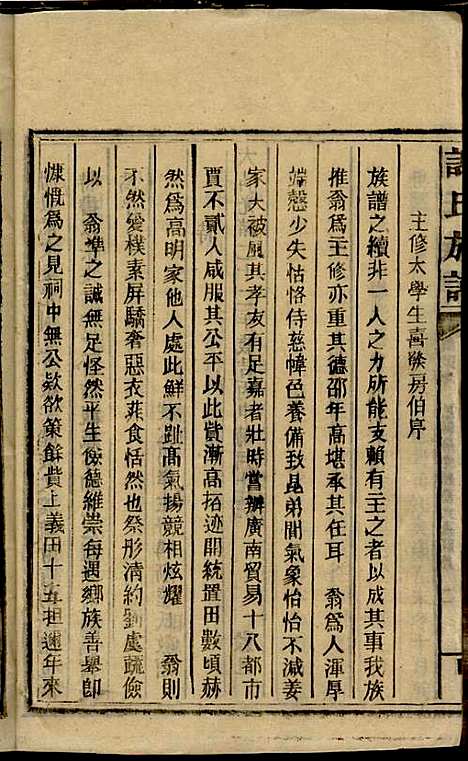 主修太學生喜 房伯序
族譜之續非一人之力所能支賴有主之者以成其事我族
推翁爲主修亦重其德邵年高堪承其任耳　翁爲人渾厚
端慤少失怙恪侍慈幃色養備致昆弟間氣象怡怡不減姜
家大被風其孝友有足嘉者壯時嘗辦廣南貿易十八都市
賈不貳人咸服其公平以此貲漸高拓迹開統置田數頃赫
然爲高明家他人處此鮮不趾高氣揚競相炫耀　翁則
不然愛樸素屏驕奢惡衣菲食恬然也祭形清約劉處疏儉
以　翁準之誠無足怪然平生儉德維崇每遇鄉族善舉即
慷慨爲之見祠中無公欵欲策餘貲上義田十五担遞年來
氏族譜